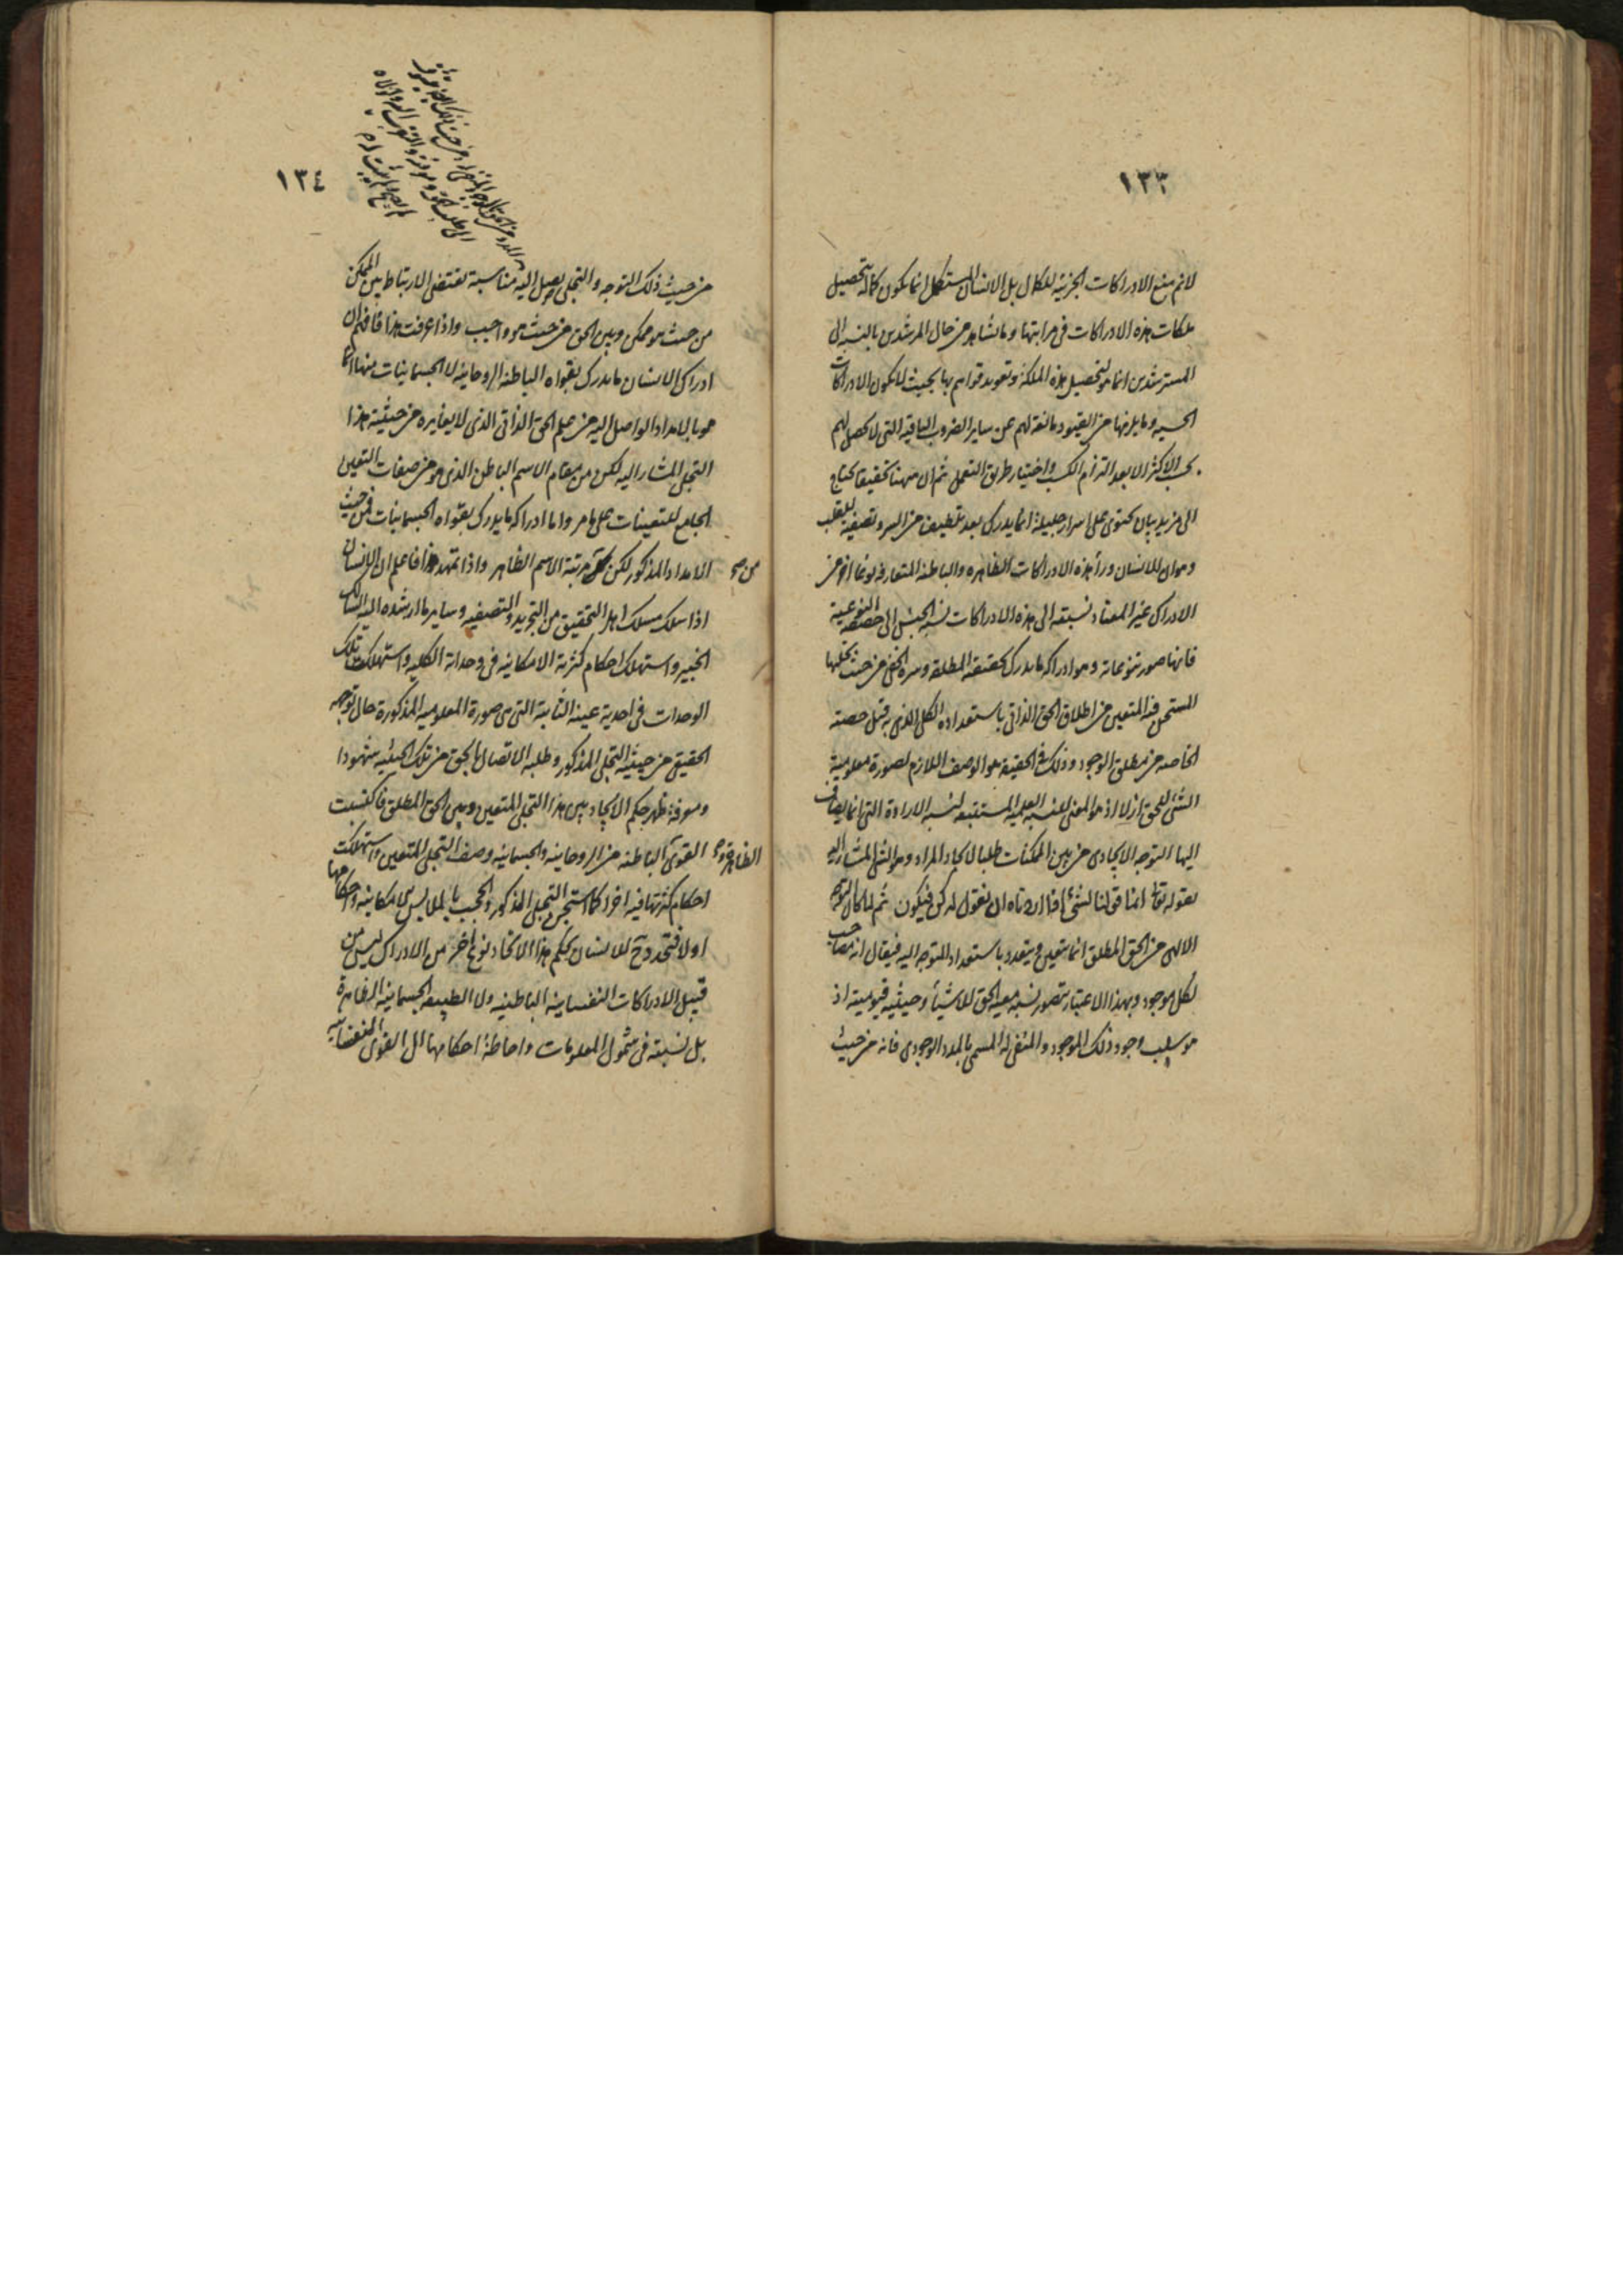 ١٣٣
لانم منع الادراكات الجزئية للكمال بل الانسان المستكمل انما يكون كماله بتحصيل
ملكات هذه الادراكات فى مراتبها وما نشاهد من حال المرشدين بالنسبه الى
المسترشدين انما هو لتحصيل هذه الملكة وتعويد قواهم بها بحيث لا يكون الادراكات
الحسيه وما يلزمها من القيود مانعة لهم عن ساير الضروب الباقيه التى لا تحصل لهم
بحسب الاكثر الا بعد التزام الكسب واختيار طريق التعمل ثم ان ههنا تحقيقا يحتاج
الى مزيد بيان يحتوى على اسرار جليلة انما يدرك بعد تلطيف من السر وتصفيه للقلب
وهو ان للانسان ورأ هذه الادراكات الظاهره والباطنة المتعارفه نوعا اخر من
الادراك غير المعتاد نسبته الى هذه الادراكات نسبة الجنس الى حصصه النوعية
فانها صور تنوعاته وهو ادراكه ما يدرك بحقيقته المطلقه وسره الخفى من حيث تجليها
المستجن فيه المتعين من اطلاق الحق الذاتى باستعداده الكلى الذى به قبل حصته
الخاصه من مطلق الوجود وذلك فى الحقيقة هو الوصف اللازم لصورة معلومية
الشئ للحق ازلا اذ هو المعنى للنسبه العلمية المستتبعه لنسبه الارادة التى انما يضاف
اليها التوجه الايجادى من بين الممكنات طلبا لايجاد المراد وهو الشئ المشار اليه
بقوله تعا انما قولنا لشئ اذا اردناه ان نقول له كن فيكون ثم لما كان التوجه
الالهى من الحق المطلق انما يتعين ويتعدد باستعداد المتوجه اليه فيقال انه مصاحب
لكل موجود وبهذا الاعتبار يتصور نسبه معية الحق للاشيأ وحيثيه قيوميته اذ
هو سبب وجود ذلك الموجود والمبقى له المسمى بالمدد الوجودى فانه من حيث
١٣٤
من حيث ذلك التوجه والتجلى يصل اليه مناسبة تقتضى الارتباط بين الممكن
من حيث هو ممكن وبين الحق من حيث هو واجب واذا عرفت هذا فافهم ان
ادراك الانسان ما يدرك بقواه الباطنه الروحانيه لا الجسمانيات منها انما
هو بالامداد الواصل اليه من علم الحق الذاتى الذى لا يغايره من حيثية هذا
التجلى المشار اليه لكن من مقام الاسم الباطن الذى هو من صفات التعين
الجامع للتعينات على ما مر واما ادراكه ما يدرك بقواه الجسمانيات فمن حيث
الامداد المذكور لكن من مرتبة الاسم الظاهر واذا تمهد هذا فاعلم ان الانسان
من صح
اذا سلك مسلك اهل التحقيق من التجريد والتصفيه وساير ما ارشده اليه السالك
الخبير واستهلك احكام كثرته الامكانيه فى وحداته الكليه واستهلكت تلك
الوحدات فى احدية عينه الثابتة التى هى صورة المعلومية المذكورة حال توجهه
الحقيقى من حيثية التجلى المذكور وطلبه الاتصال بالحق من تلك الحيثيه شهودا
ومعرفة ظهر حكم الاتحاد بين هذا التجلى المتعين وبين الحق المطلق فاكتسبت
القوى الباطنه من الروحانيه والجسمانيه وصف التجلى المتعين واستهلكت
الظاهرة و صح
احكام كثرتها فيه اخرا كما استجن التجلى المذكور والحجب بالملابس الامكانيه واحكامها
اولا فتجدد ح للانسان بحكم هذا الاتحاد نوع اخر من الادراك ليس من
قبيل الادراكات النفسانية الباطنيه ولا الطبيعه الجسمانيه الظاهرة
بل نسبته فى شمول المعلومات واحاطة احكامها الى القوى النفسانيه